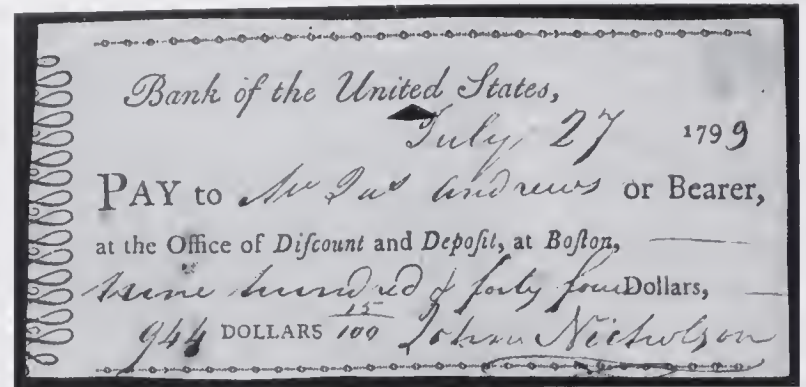 Bank of the United States,
July, 27 1799
PAY to Mr Jas Andrews or Bearer,
at the Office of Diſcount and Depoſit, at Boſton,
nine hundred & forty four Dollars,
944 DOLLARS 15/100 Nicholson